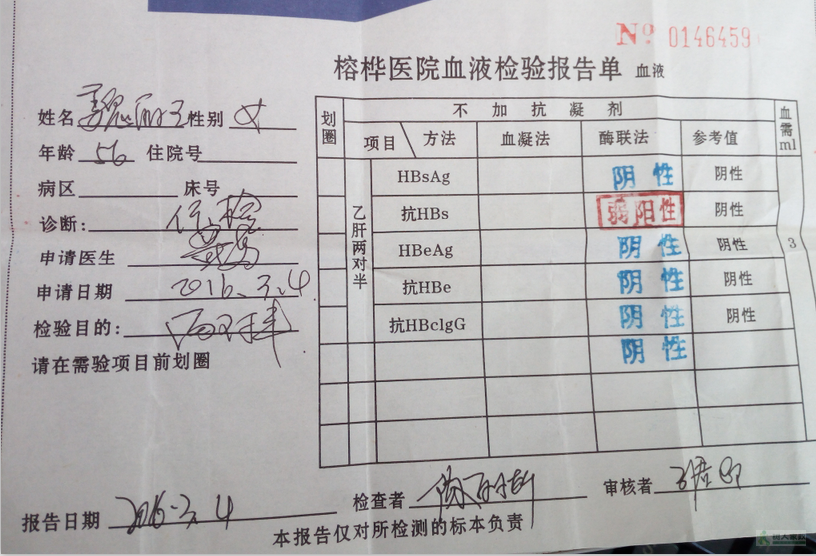 Nº 0146459
榕桦医院血液检验报告单 血液
姓名 性别 女
年龄 56 住院号
病区 床号
诊断: 体检
申请医生
申请日期 2016.3.4
检验目的: 两对半
请在需验项目前划圈
划圈 不加抗凝剂 血需ml
项目 方法 血凝法 酶联法 参考值
乙肝两对半
HBsAg 阴性 阴性
抗HBs 弱阳性 阴性
HBeAg 阴性 阴性 3
抗HBe 阴性 阴性
抗HBclgG 阴性 阴性
阴性
报告日期 2016.3.4 检查者 审核者
本报告仅对所检测的标本负责